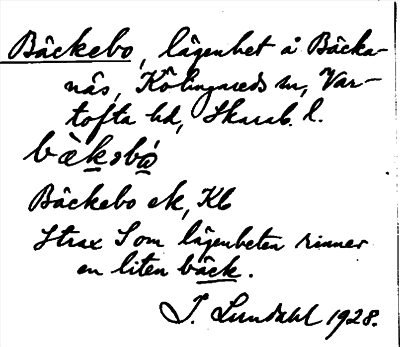 Bäckebo, lägenhet å Bäcka-
näs, Kölingareds sn, Var-
tofta hd, Skarab. l.
bäkəbó
Bäckebo ek, Kb
Strax S om lägenheten rinner
en liten bäck.
J. Lundahl 1928.